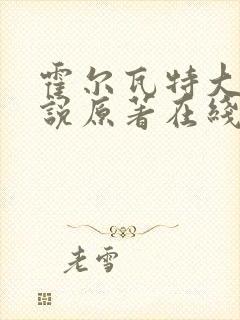 霍尔瓦特大
說原著在綫
老雪